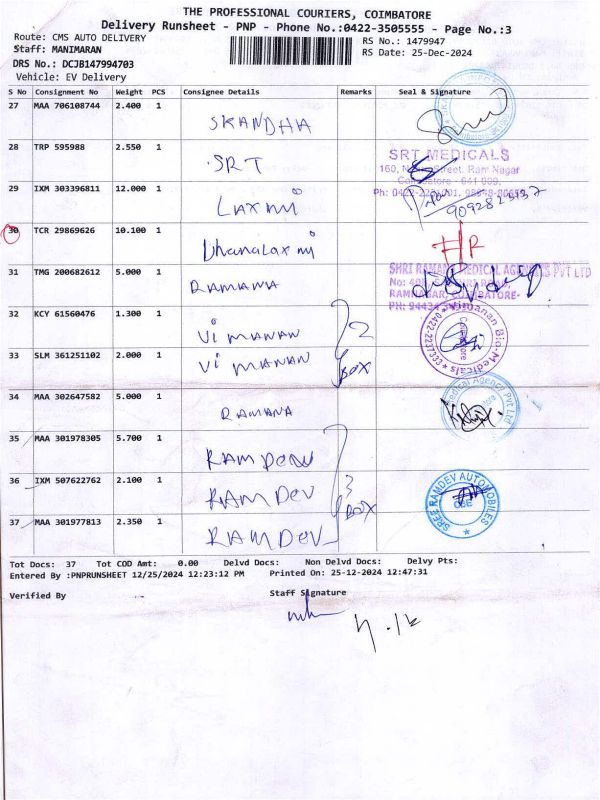 THE PROFESSIONAL COURIERS, COIMBATORE
Delivery Runsheet - PNP - Phone No.:0422-3505555 - Page No.:3
Route: CMS AUTO DELIVERY
RS No.: 1479947
Staff: MANIMARAN
RS Date: 25-Dec-2024
DRS No.: DCJB147994703
Vehicle: EV Delivery
S No Consignment No Weight PCS Consignee Details Remarks Seal & Signature
27 MAA 706108744 2.400 1 SKANDHA
28 TRP 595988 2.550 1 SRT
SRT MEDICALS
Street, Ram Nagar
29 IXM 303396811 12.000 1 Laxmi
30 TCR 29869626 10.100 1 Dhanalaxmi
31 TMG 200682612 5.000 1 RAMANA
SHRI RAMANA MEDICAL AGENCIES PVT LTD
32 KCY 61560476 1.300 1 ViMANAN 2
33 SLM 361251102 2.000 1 ViMANAN BOX
Vimanan Bio-Medicals
34 MAA 302647582 5.000 1 RAMANA
Medical Agency Pvt Ltd
35 MAA 301978305 5.700 1 RAMDEV
36 IXM 507622762 2.100 1 RAMDEV 3 BOX
SREE RAMDEV AUTOMOBILES
CBE
37 MAA 301977813 2.350 1 RAMDEV
Tot Docs: 37 Tot COD Amt: 0.00 Delvd Docs: Non Delvd Docs: Delvy Pts:
Entered By :PNPRUNSHEET 12/25/2024 12:23:12 PM Printed On: 25-12-2024 12:47:31
Verified By Staff Signature